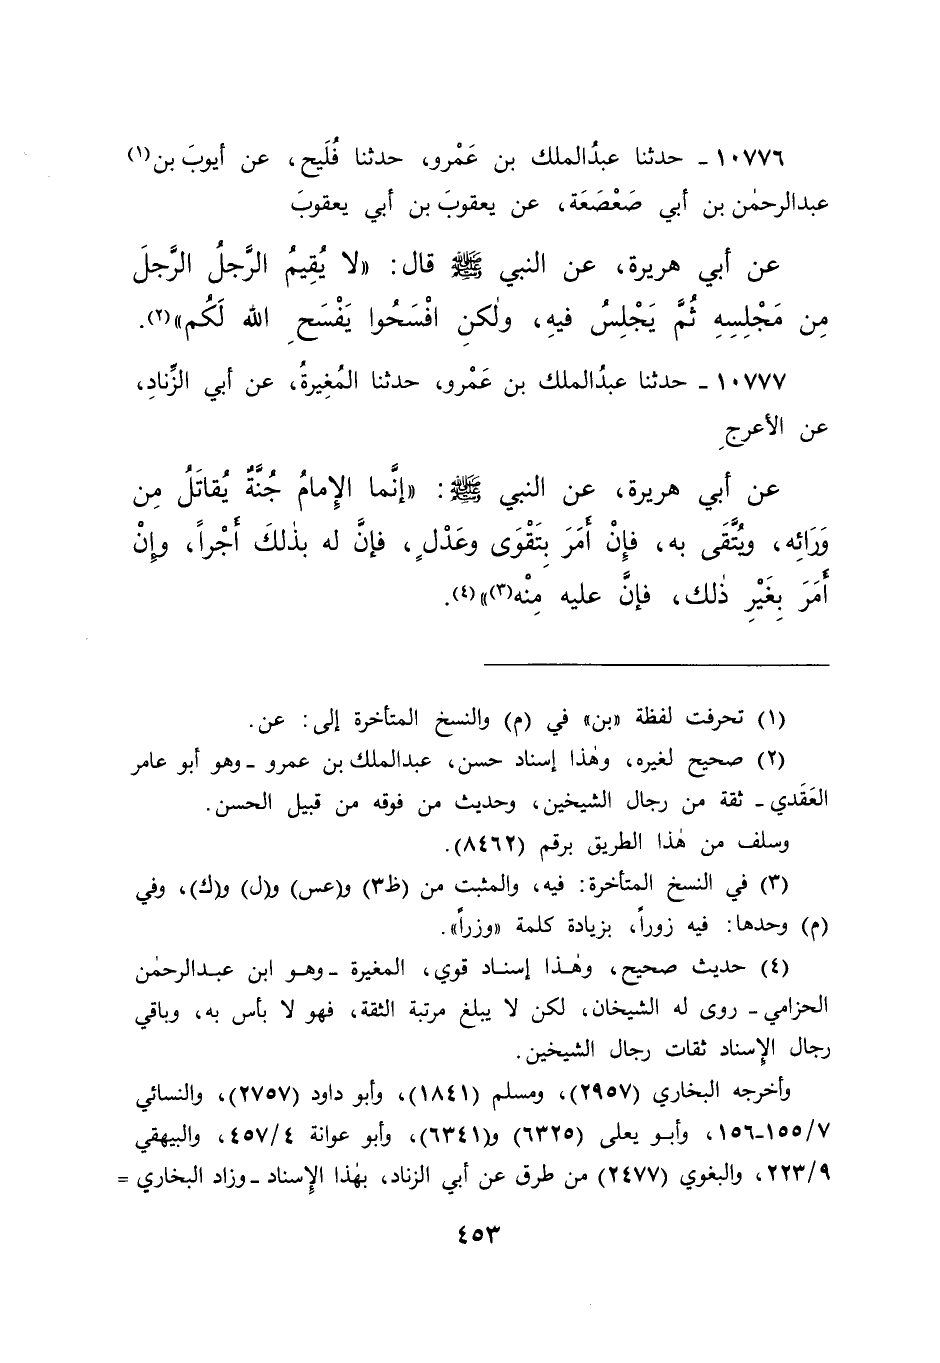 ١٠٧٧٦ - حدثنا عبدُالملك بن عَمْرو، حدثنا فُلَيح، عن أيوبَ بن(١)
عبدالرحمٰن بن أبي صَعْصَعَة، عن يعقوبَ بن أبي يعقوبَ
عن أبي هريرة، عن النبي ﷺ قال: «لا يُقِيمُ الرَّجلُ الرَّجلَ
مِن مَجْلِسِهِ ثُمَّ يَجْلِسُ فيهِ، ولٰكنِ افْسَحُوا يَفْسَحِ الله لَكُم»(٢).
١٠٧٧٧ - حدثنا عبدُالملك بن عَمْرو، حدثنا المُغِيرةُ، عن أبي الزِّنادِ،
عن الأعرجِ
عن أبي هريرة، عن النبي ﷺ: «إنَّما الإمامُ جُنَّةٌ يُقاتَلُ مِن
وَرَائِه، ويُتَّقَى به، فإنْ أَمَرَ بِتَقْوَى وعَدْلٍ، فإنَّ له بذٰلكَ أَجْراً، وإنْ
أَمَرَ بِغَيْرِ ذٰلك، فإنَّ عليه مِنْه(٣)»(٤).
(١) تحرفت لفظة «بن» في (م) والنسخ المتأخرة إلى: عن.
(٢) صحيح لغيره، وهٰذا إسناد حسن، عبدالملك بن عمرو - وهو أبو عامر
العَقَدي - ثقة من رجال الشيخين، وحديث من فوقه من قبيل الحسن.
وسلف من هٰذا الطريق برقم (٨٤٦٢).
(٣) في النسخ المتأخرة: فيه، والمثبت من (ظ٣) و(عس) و(ل) و(ك)، وفي
(م) وحدها: فيه زوراً، بزيادة كلمة «وزراً».
(٤) حديث صحيح، وهٰذا إسناد قوي، المغيرة - وهو ابن عبدالرحمٰن
الحزامي - روى له الشيخان، لكن لا يبلغ مرتبة الثقة، فهو لا بأس به، وباقي
رجال الإسناد ثقات رجال الشيخين.
وأخرجه البخاري (٢٩٥٧)، ومسلم (١٨٤١)، وأبو داود (٢٧٥٧)، والنسائي
١٥٥/٧-١٥٦، وأبو يعلى (٦٣٢٥) و(٦٣٤١)، وأبو عوانة ٤٥٧/٤، والبيهقي
٢٢٣/٩، والبغوي (٢٤٧٧) من طرق عن أبي الزناد، بهٰذا الإسناد - وزاد البخاري =
٤٥٣